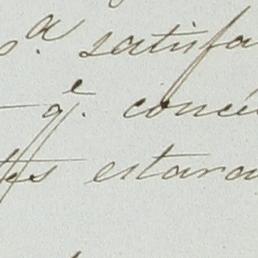 s.ª satisfa
q.e concè
tes estara